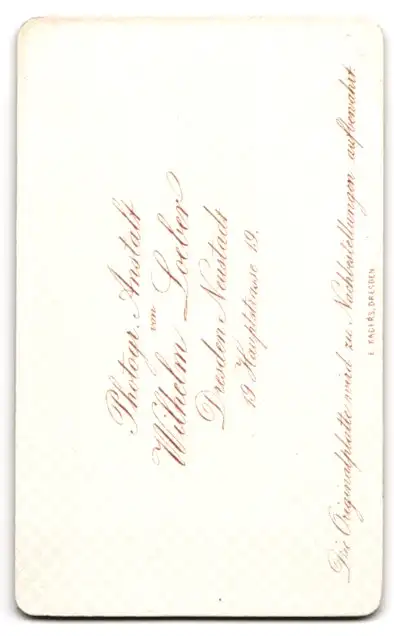 Photogr. Anstalt
von
Wilhelm Loeber
Dresden Neustadt
19 Hauptstrasse 19.
Die Originalplatte wird zu Nachbestellungen aufbewahrt.
E. KADERS, DRESDEN